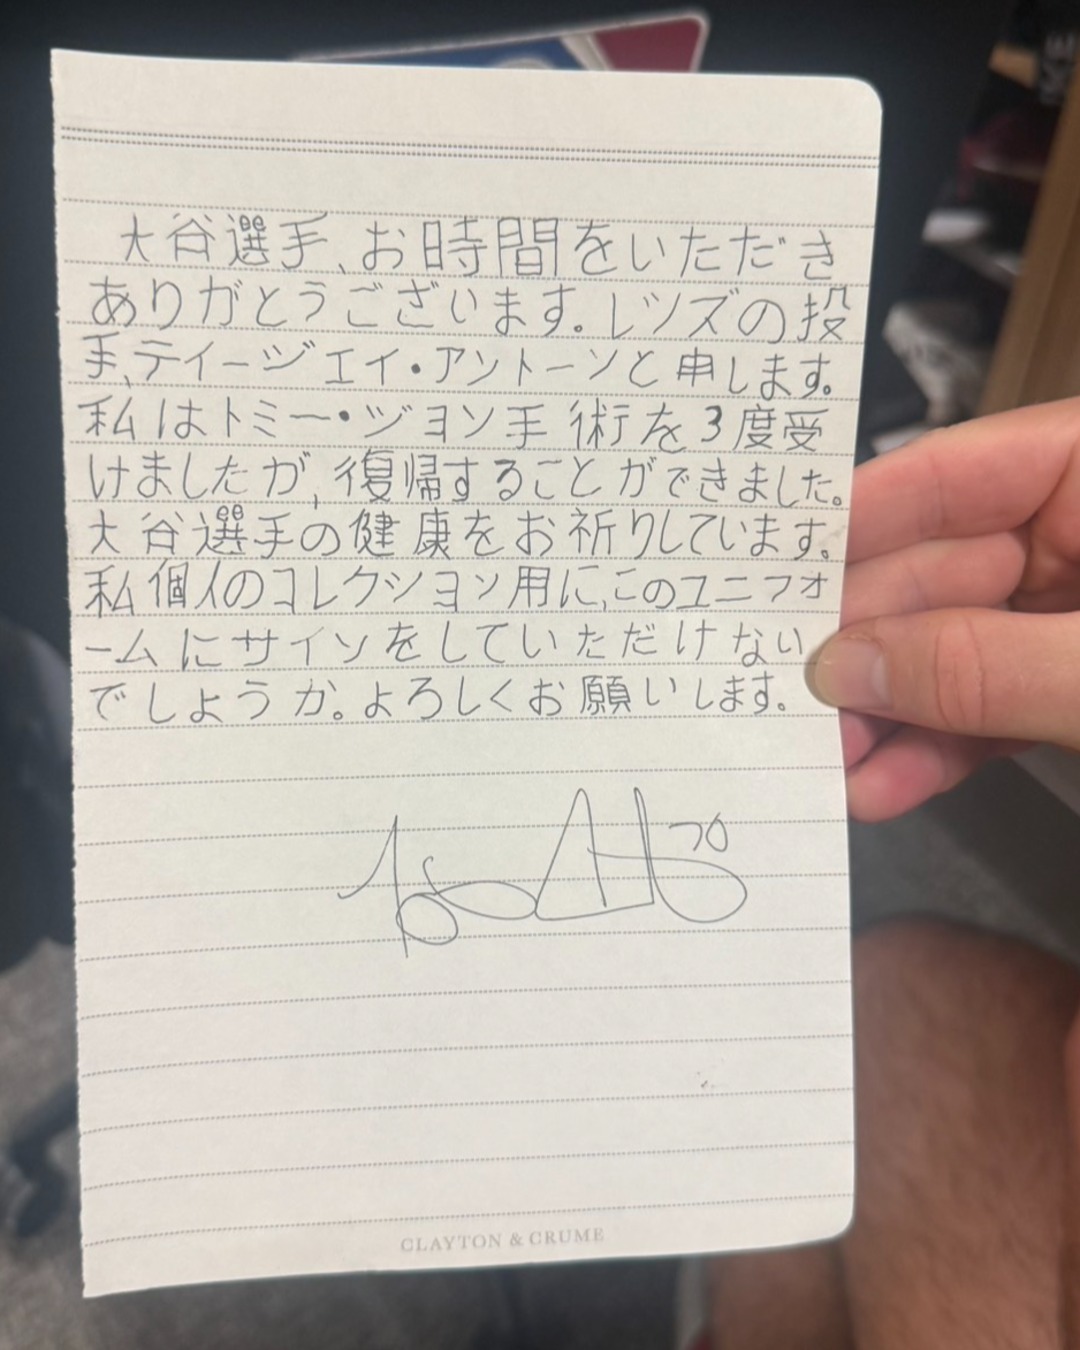 大谷選手、お時間をいただき
ありがとうございます。レッズの投
手、ティージェイ・アントーンと申します。
私はトミー・ジョン手術を3度受
けましたが、復帰することができました。
大谷選手の健康をお祈りしています。
私個人のコレクション用に、このユニフォ
ームにサインをしていただけない
でしょうか。よろしくお願いします。
70
CLAYTON & CRUME